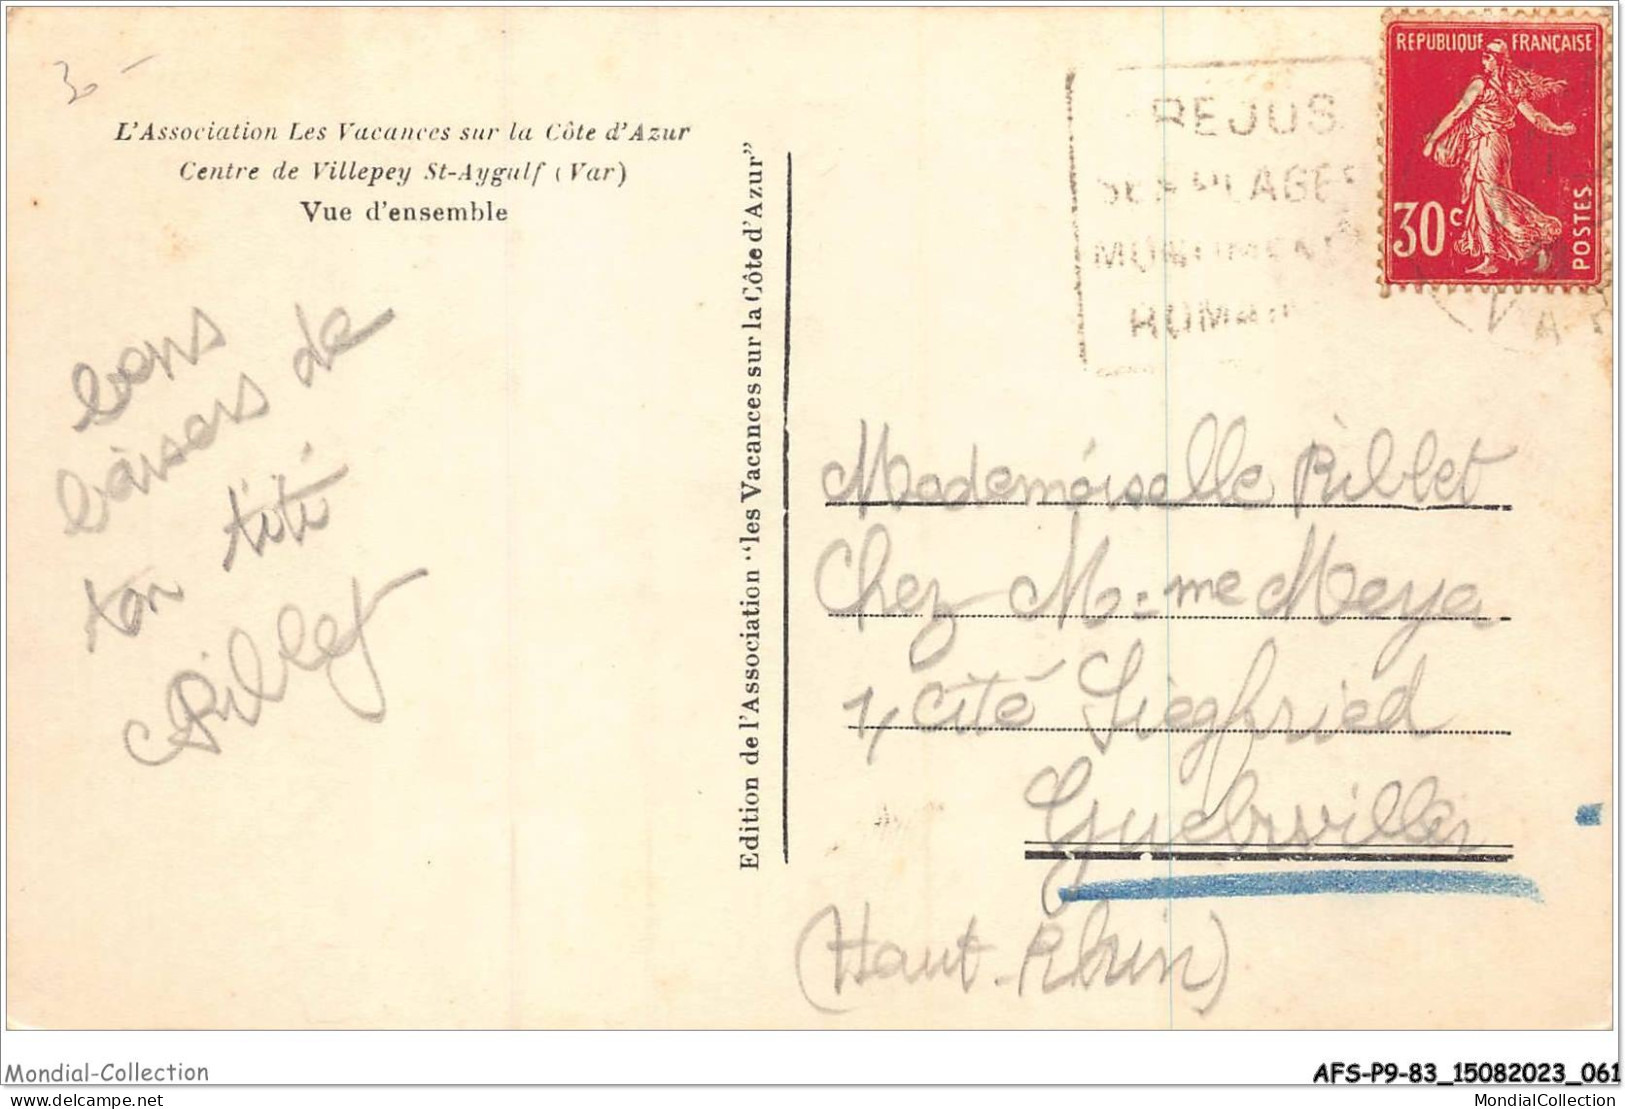 3-
L'Association Les Vacances sur la Côte d'Azur
Centre de Villepey St-Aygulf (Var)
Vue d'ensemble
bons
baisers de
ton titi
Riblet
Edition de l'Association "les Vacances sur la Côte d'Azur"
REJUS
SES PLAGES
MONUMEN
ROMA
REPUBLIQUE FRANÇAISE
30c
POSTES
VA
Mademoiselle Riblet
Chez M.me Meya
1, cité Siegfried
Guebwiller
(Haut-Rhin)
Mondial-Collection
AFS-P9-83_15082023_061
delcampe.net
MondialCollection